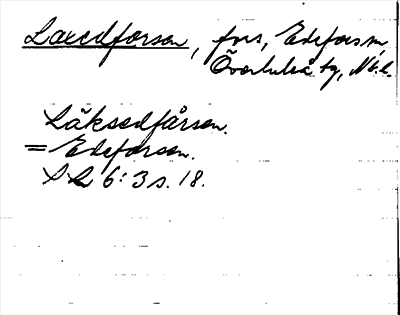 Laxedforsen, fors, Edefors sn,
Överluleå tg, Nb.l.
Läksedfårsen.
= Edeforsen.
SL 6:3 s. 18.